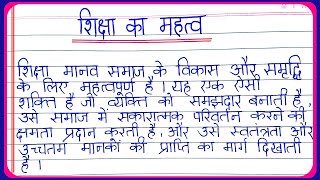 शिक्षा का महत्व
शिक्षा मानव समाज के विकास और समृद्धि
के लिए महत्वपूर्ण है । यह एक ऐसी
शक्ति है जो व्यक्ति को समझदार बनाती है ,
उसे समाज में सकारात्मक परिवर्तन करने की
क्षमता प्रदान करती है , और उसे स्वतंत्रता और
उच्चतम मानकों की प्राप्ति का मार्ग दिखाती
है ।